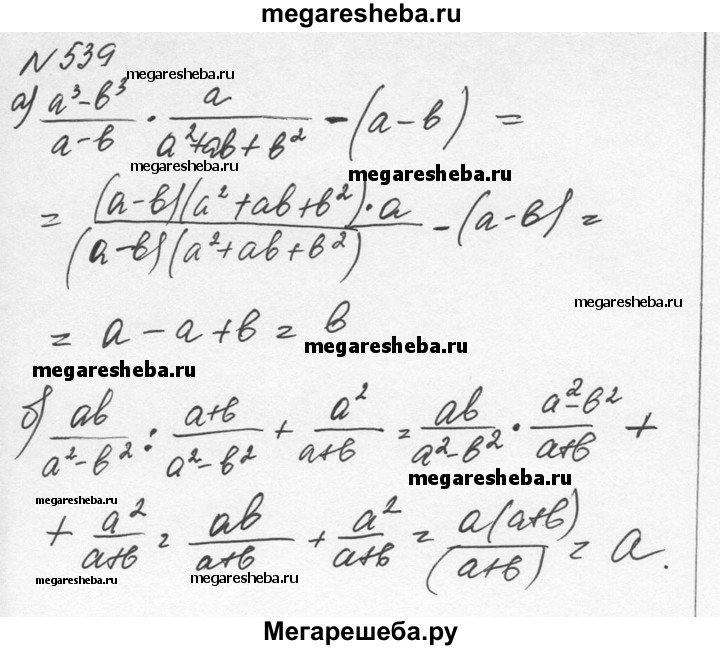 megaresheba.ru
N 539
megaresheba.ru
а) (a³-b³)/(a-b) · a/(a²+ab+b²) - (a-b) =
megaresheba.ru
megaresheba.ru
= ((a-b)(a²+ab+b²)·a)/((a-b)(a²+ab+b²)) - (a-b) =
megaresheba.ru
= a - a + b = b
megaresheba.ru
megaresheba.ru
б) ab/(a²-b²) : (a+b)/(a²-b²) + a²/(a+b) = ab/(a²-b²) · (a²-b²)/(a+b) +
megaresheba.ru
megaresheba.ru
+ a²/(a+b) = ab/(a+b) + a²/(a+b) = a(a+b)/(a+b) = a.
megaresheba.ru
megaresheba.ru
Мегарешеба.ру